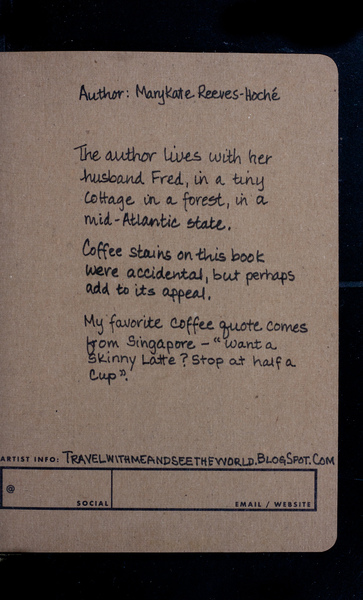 Author: MaryKate Reeves-Hoché
The author lives with her
husband Fred, in a tiny
Cottage in a forest, in a
mid-Atlantic state.
Coffee stains on this book
were accidental, but perhaps
add to its appeal.
My favorite coffee quote comes
from Singapore – "Want a
Skinny Latte? Stop at half a
Cup".
ARTIST INFO: TRAVELWITHMEANDSEETHEWORLD.BLOGSPOT.COM
@
SOCIAL
EMAIL / WEBSITE